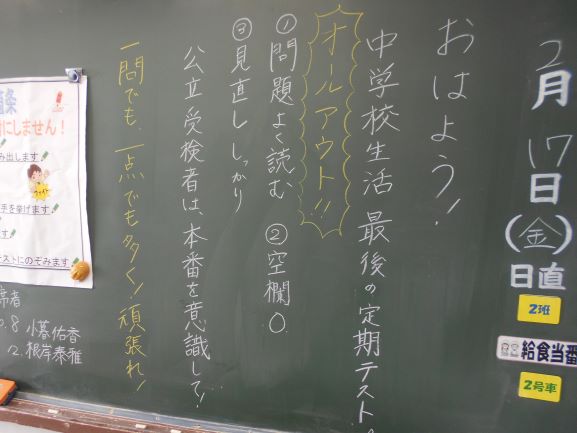 2月17日(金)
日直
2班
給食当番
2号車
おはよう!
中学校生活 最後の定期テスト
オールアウト!!
①問題よく読む ②空欄0
③見直ししっかり
公立受検者は、本番を意識して!
一問でも、一点でも多く!頑張れ!
にしません!
み出します
手を挙げます
ます
テストにのぞみます
席者
8 小暮佑香
12. 根岸泰雅